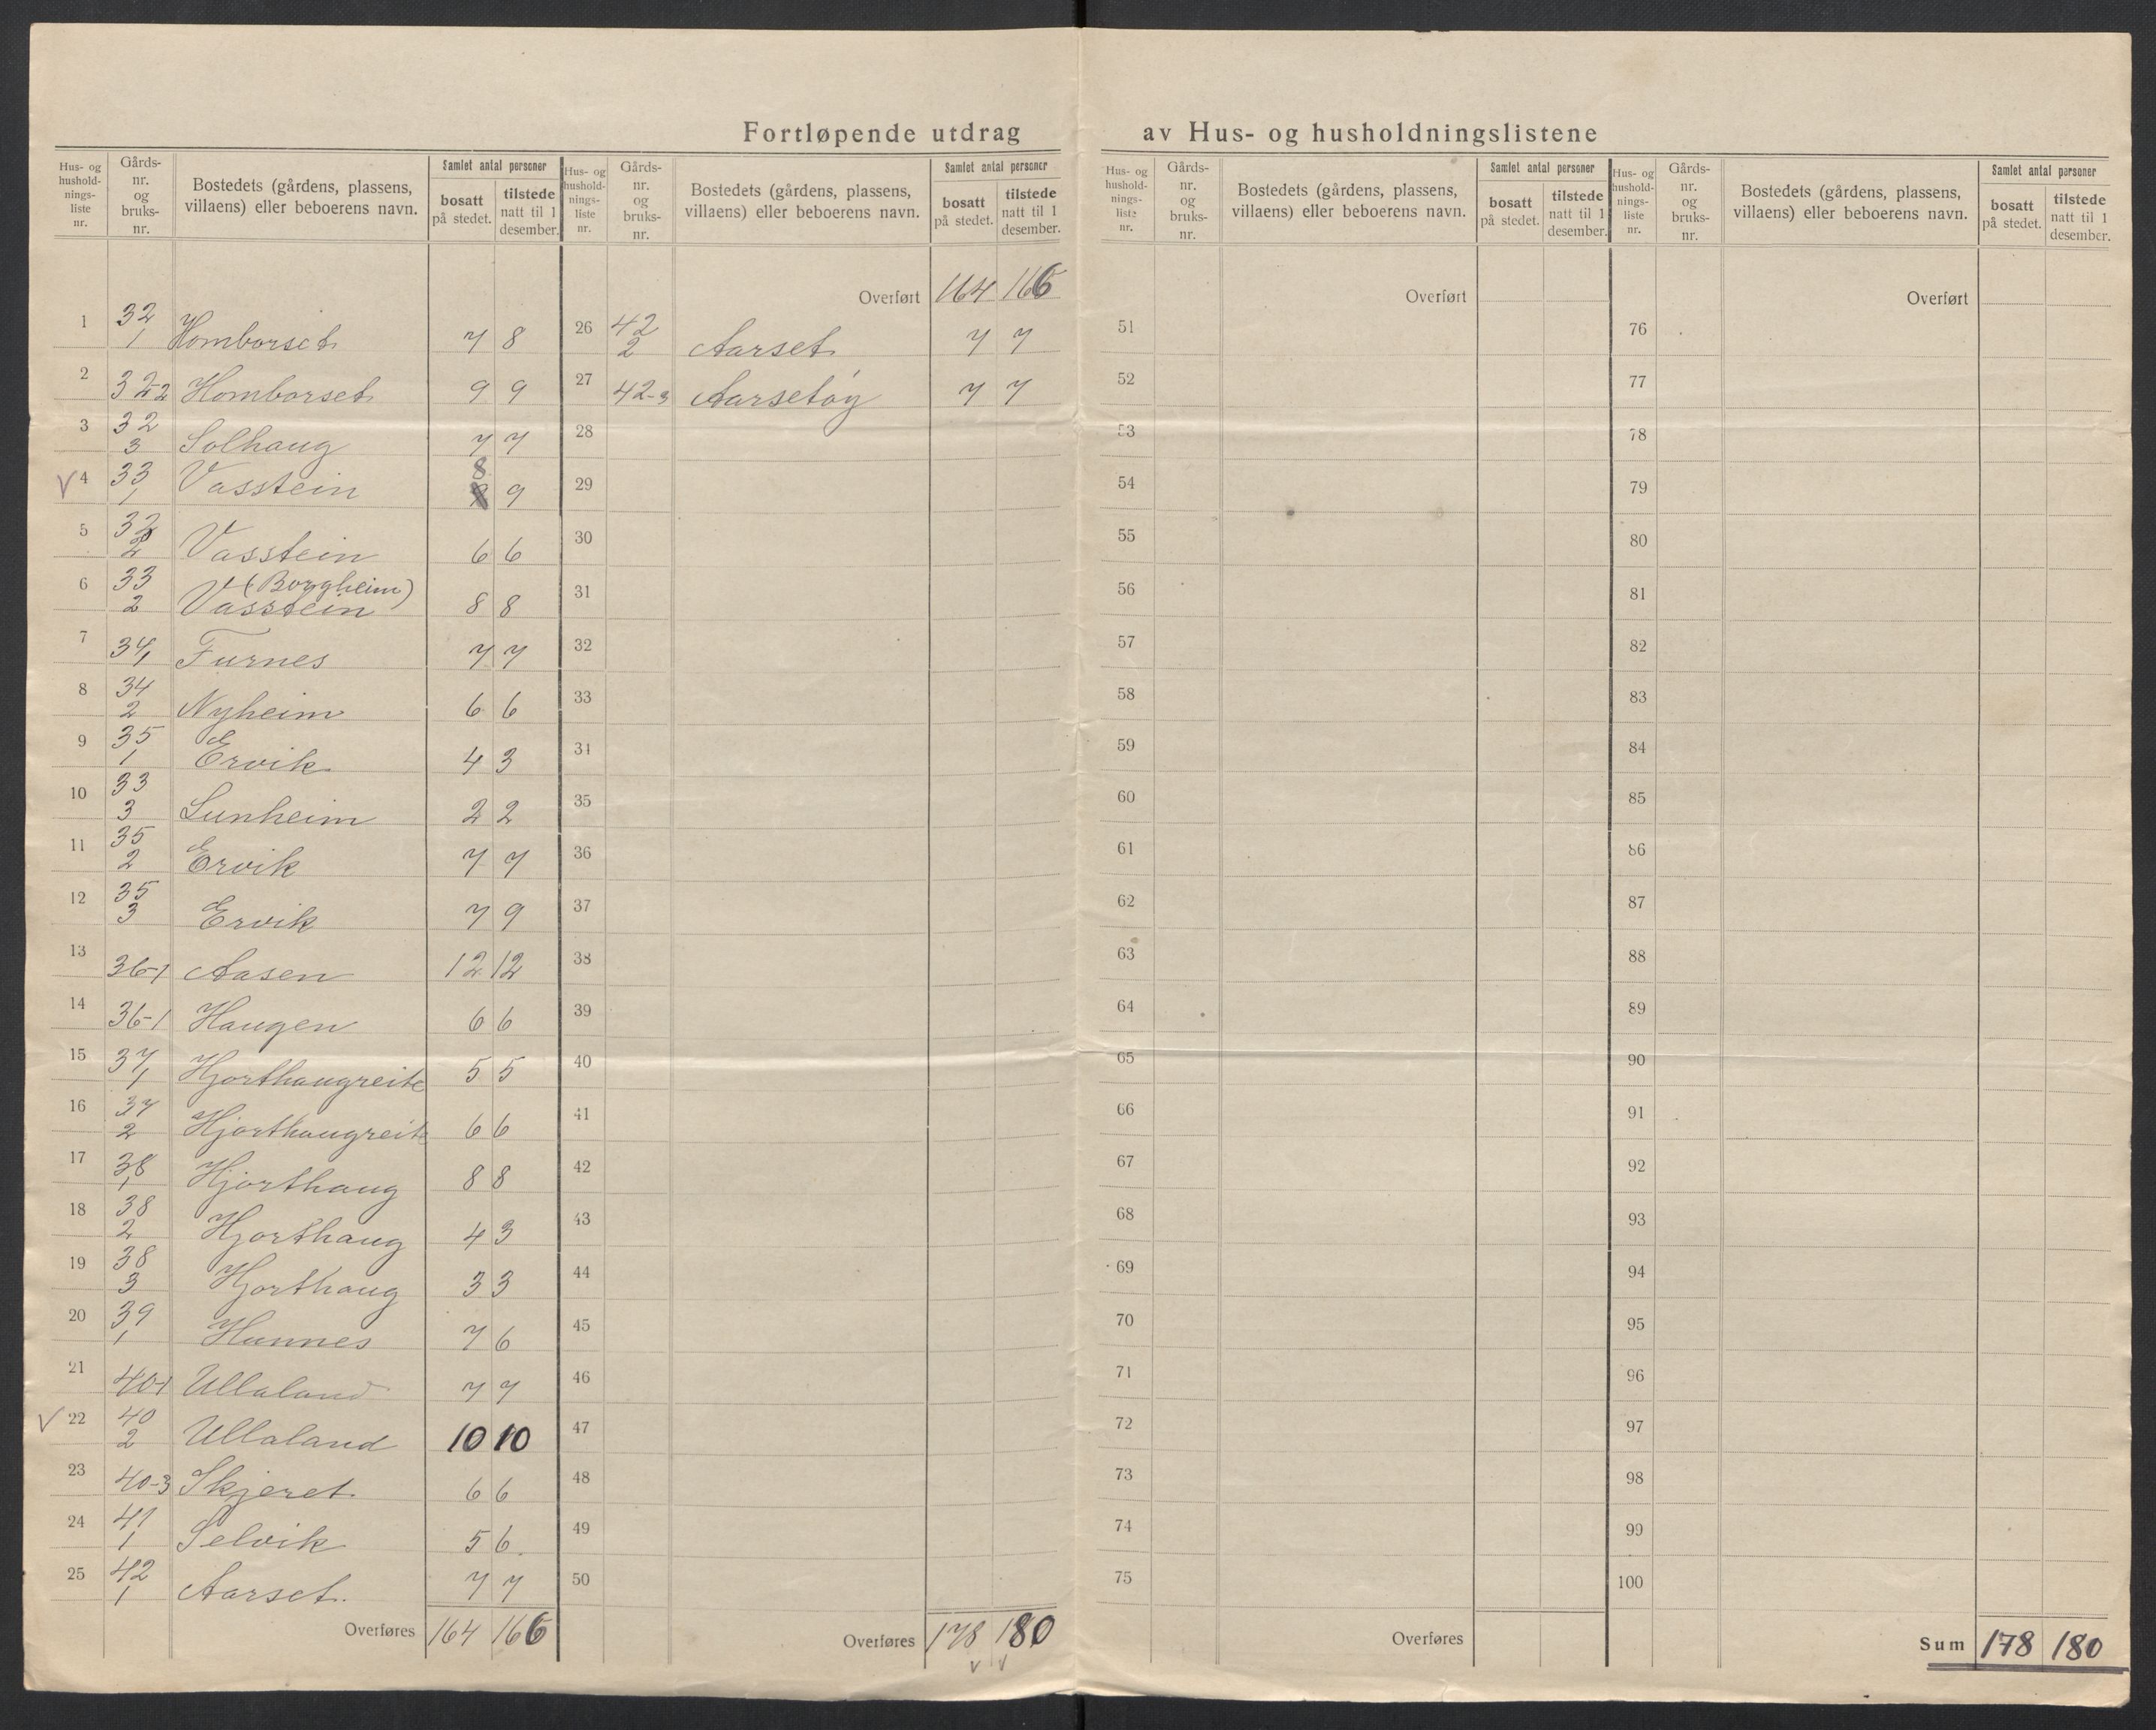 Fortløpende utdrag av Hus- og husholdningslistene
Hus- og hushold-nings-liste nr.
Gårds-nr. og bruks-nr.
Bostedets (gårdens, plassens, villaens) eller beboerens navn.
Samlet antal personer
bosatt på stedet.
tilstede natt til 1 desember.
Hus- og hushold-nings-liste nr.
Gårds-nr. og bruks-nr.
Bostedets (gårdens, plassens, villaens) eller beboerens navn.
Samlet antal personer
bosatt på stedet.
tilstede natt til 1 desember.
Hus- og hushold-nings-liste nr.
Gårds-nr. og bruks-nr.
Bostedets (gårdens, plassens, villaens) eller beboerens navn.
Samlet antal personer
bosatt på stedet.
tilstede natt til 1 desember.
Hus- og hushold-nings-liste nr.
Gårds-nr. og bruks-nr.
Bostedets (gårdens, plassens, villaens) eller beboerens navn.
Samlet antal personer
bosatt på stedet.
tilstede natt til 1 desember.
1 32 1 Homborset 7 8
2 32-2 Homborset 9 9
3 32 3 Solhaug 7 7
V 4 33 1 Vasstein 8 9
5 33 2 Vasstein 6 6
6 33 2 Vasstein (Borgheim) 8 8
7 34 1 Furnes 7 7
8 34 2 Nyheim 6 6
9 35 1 Ervik 4 3
10 33 3 Sunheim 2 2
11 35 2 Ervik 7 7
12 35 3 Ervik 7 9
13 36-1 Aasen 12 12
14 36-1 Haugen 6 6
15 37 1 Hjorthaugreite 5 5
16 37 2 Hjorthaugreite 6 6
17 38 1 Hjorthaug 8 8
18 38 2 Hjorthaug 4 3
19 38 3 Hjorthaug 3 3
20 39 1 Hunnes 7 6
21 40-1 Ullaland 7 7
V 22 40 2 Ullaland 10 10
23 40-3 Skjeret 6 6
24 41 1 Selvik 5 6
25 42 1 Aarset 7 7
Overføres 164 166
Overført 164 166
26 42 2 Aarset 7 7
27 42-3 Aarsetøy 7 7
28
29
30
31
32
33
34
35
36
37
38
39
40
41
42
43
44
45
46
47
48
49
50
Overføres 178 180
V V
Overført
51
52
53
54
55
56
57
58
59
60
61
62
63
64
65
66
67
68
69
70
71
72
73
74
75
Overføres
Overført
76
77
78
79
80
81
82
83
84
85
86
87
88
89
90
91
92
93
94
95
96
97
98
99
100
Sum 178 180